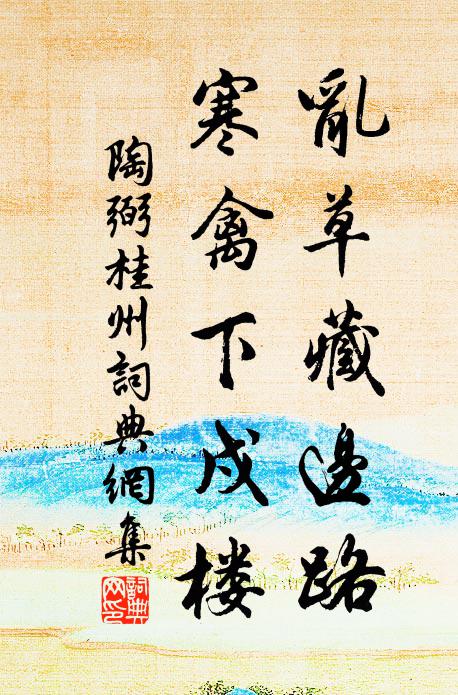 亂草藏邊路
寒禽下戍楼
陶弼桂州詞典網集
詞典
网印